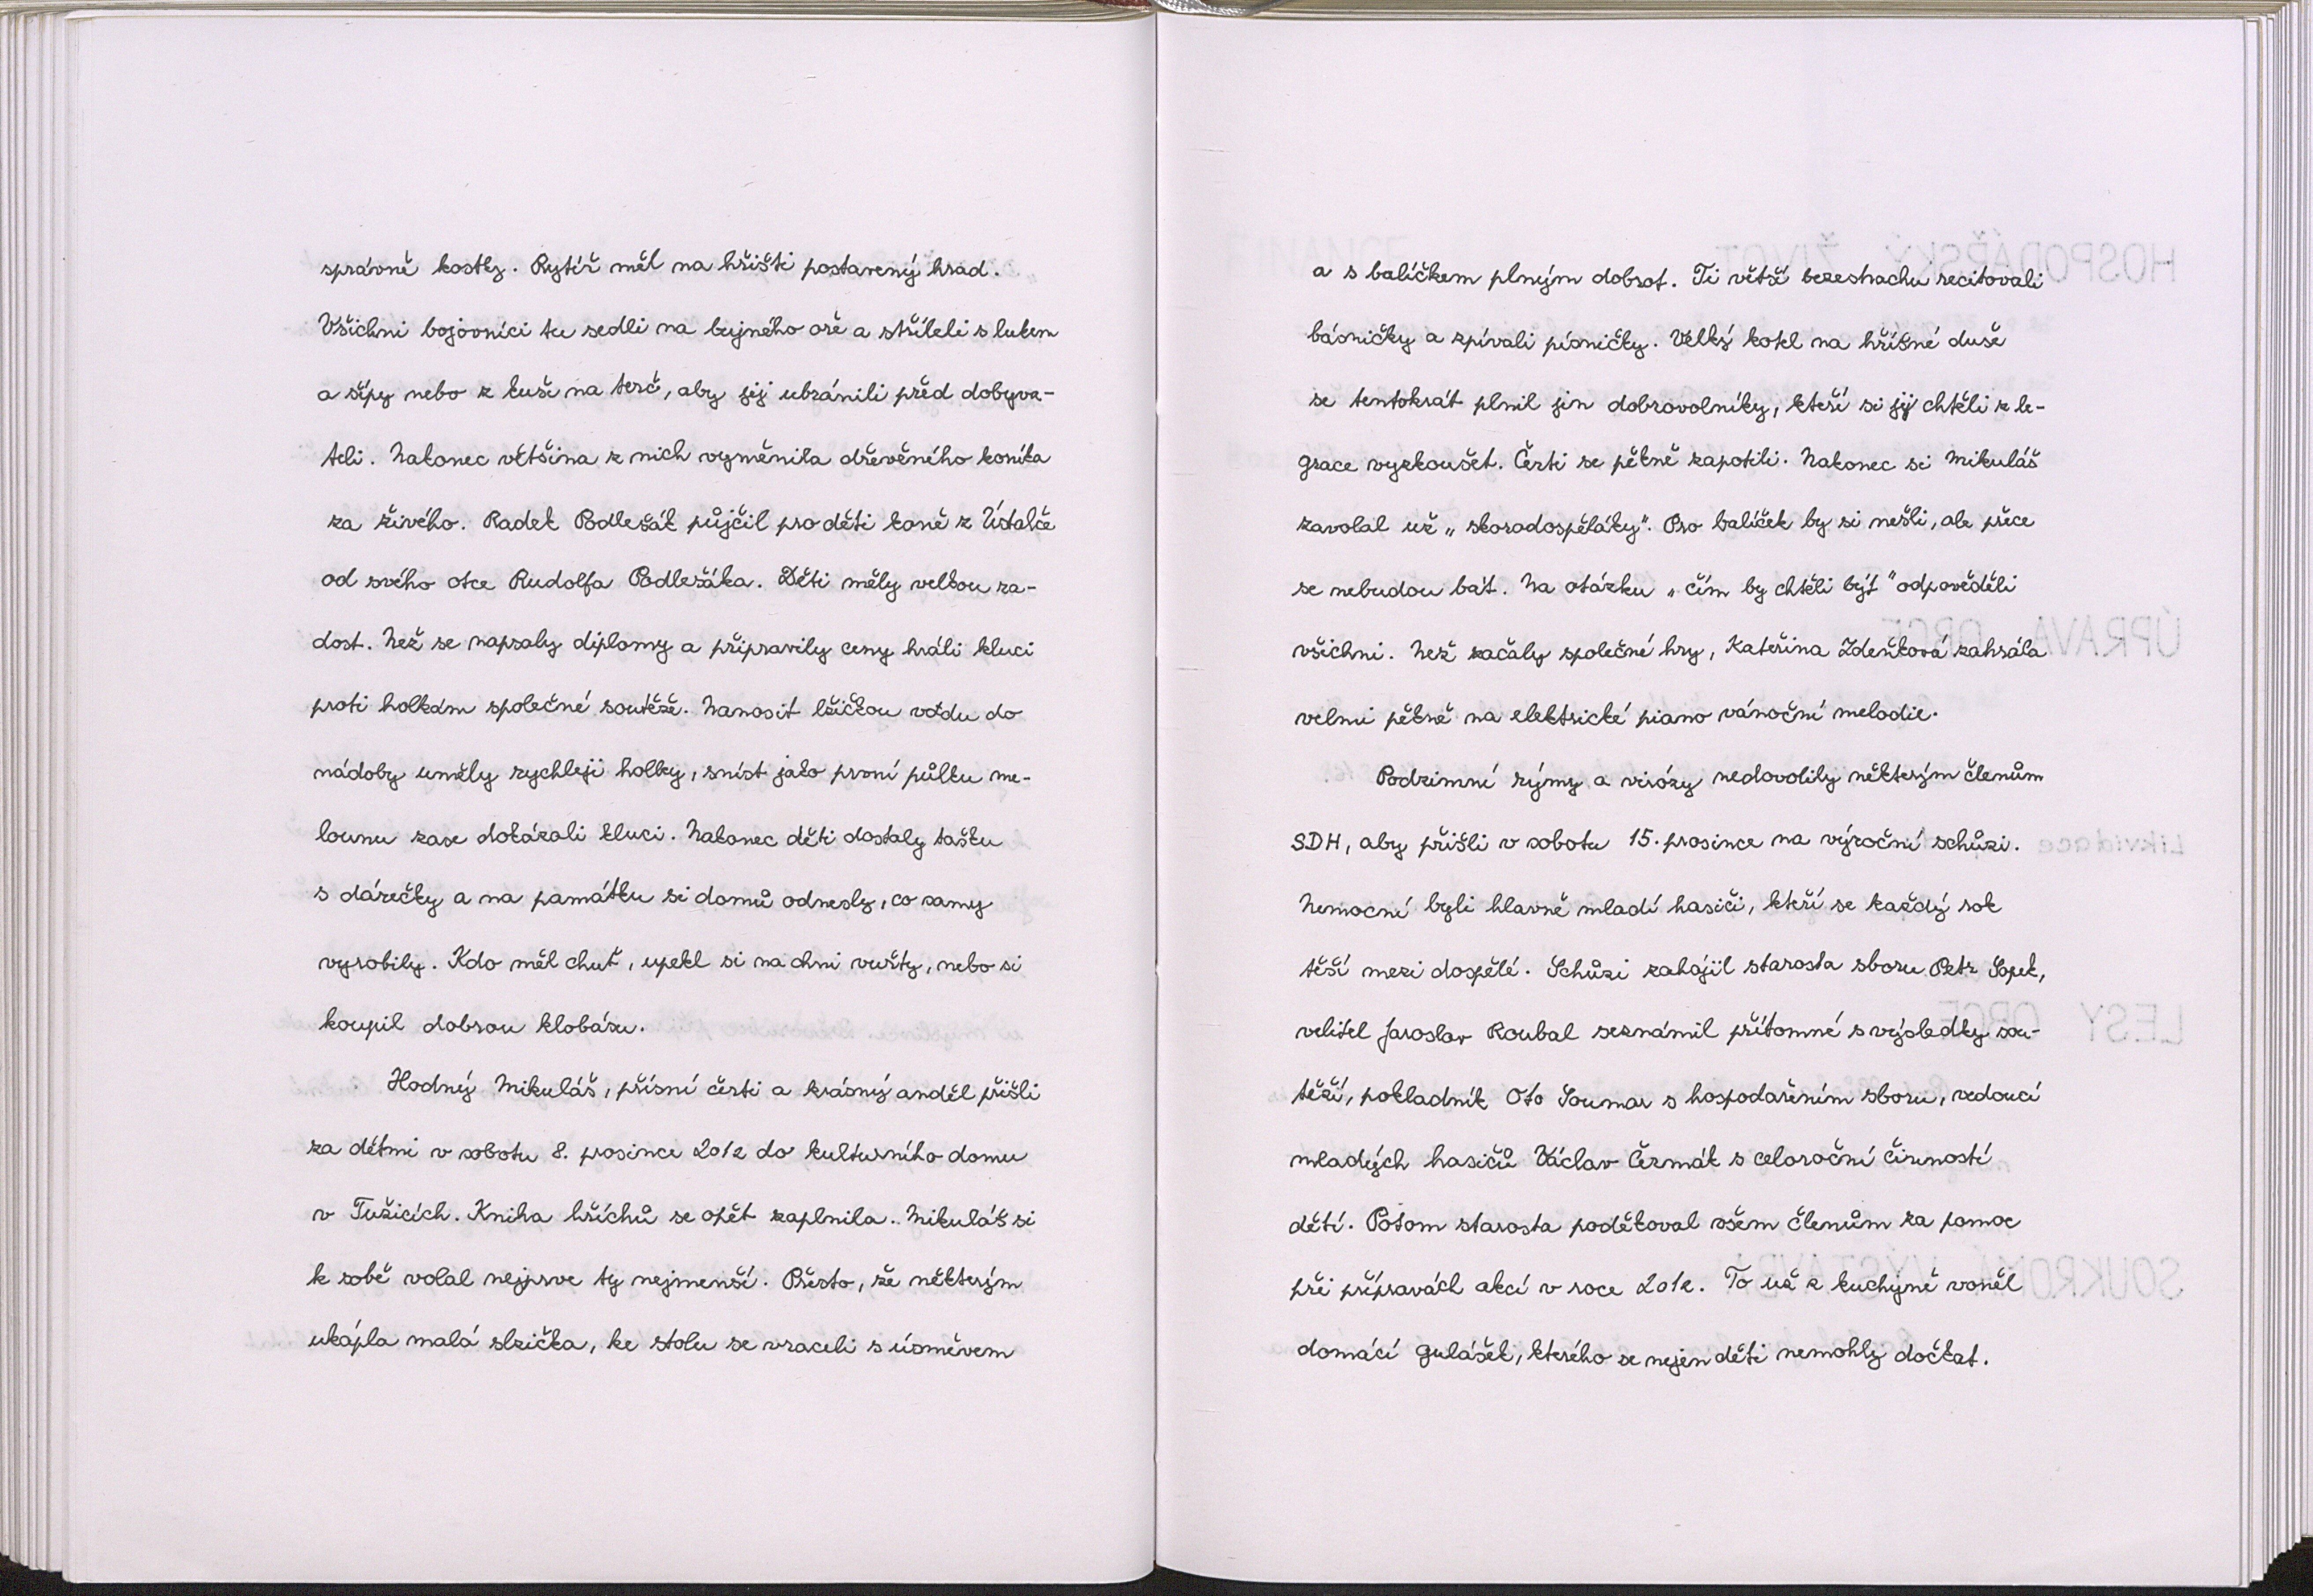 správné kostky. Rytíř měl na hřišti postavený hrad.
Všichni bojovníci tu sedli na bujného oře a stříleli s lukem
a šípy nebo z kuše na terč, aby jej ubránili před dobyva-
teli. Nakonec většina z nich vyměnila dřevěného koníka
za živého. Radek Podležák půjčil pro děti koně z Ústalče
od svého otce Rudolfa Podležáka. Děti měly velkou ra-
dost. Než se napsaly diplomy a připravily ceny hráli kluci
proti holkám společné soutěže. Nanosit lžičkou vodu do
nádoby uměly rychleji holky, sníst jako první půlku me-
lounu zase dokázali kluci. Nakonec děti dostaly tašku
s dárečky a na památku si domů odnesly, co samy
vyrobily. Kdo měl chuť, upekl si na ohni vuřty, nebo si
koupil dobrou klobásu.
Hodný Mikuláš, přísní čerti a krásný anděl přišli
za dětmi v sobotu 8. prosince 2012 do kulturního domu
v Tužicích. Kniha hříchů se opět zaplnila. Mikuláš si
k sobě volal nejprve ty nejmenší. Přesto, že některým
ukápla malá slzička, ke stolu se vraceli s úsměvem
a s balíčkem plným dobrot. Ti větší bezestrachu recitovali
básničky a zpívali písničky. Velký kotel na hříšné duše
se tentokrát plnil jen dobrovolníky, kteří si jej chtěli z le-
grace vyzkoušet. Čerti se pěkně zapotili. Nakonec si Mikuláš
zavolal už „skoradospěláky". Pro balíček by si nešli, ale přece
se nebudou bát. Na otázku „čím by chtěli být" odpověděli
všichni. Než začaly společné hry, Kateřina Zdeňková zahrála
velmi pěkně na elektrické piano vánoční melodie.
Podzimní rýmy a virózy nedovolily některým členům
SDH, aby přišli v sobotu 15. prosince na výroční schůzi.
Nemocní byli hlavně mladí hasiči, kteří se každý rok
těší mezi dospělé. Schůzi zahájil starosta sboru Petr Sopek,
velitel Jaroslav Roubal seznámil přítomné s výsledky sou-
těží, pokladník Oto Soumar s hospodařením sboru, vedoucí
mladých hasičů Václav Čermák s celoroční činností
dětí. Potom starosta poděkoval všem členům za pomoc
při přípravách akcí v roce 2012. To už z kuchyně voněl
domácí gulášek, kterého se nejen děti nemohly dočkat.